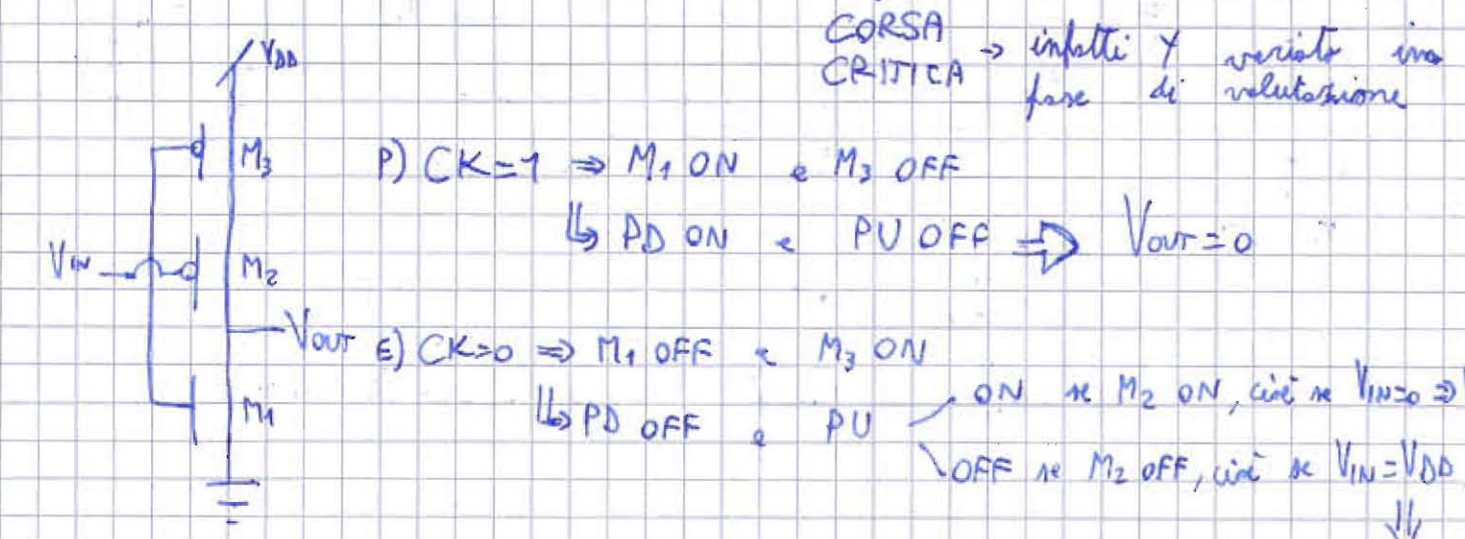 CORSA
CRITICA → infatti Y variato in
fase di valutazione
VDD
M3
P) CK=1 ⇒ M1 ON e M3 OFF
↳ PD ON e PU OFF ⇒ VOUT=0
VIN
M2
VOUT
E) CK=0 ⇒ M1 OFF e M3 ON
↳ PD OFF e PU
ON se M2 ON, cioè se VIN=0 ⇒
M1
OFF se M2 OFF, cioè se VIN=VDD
⇓